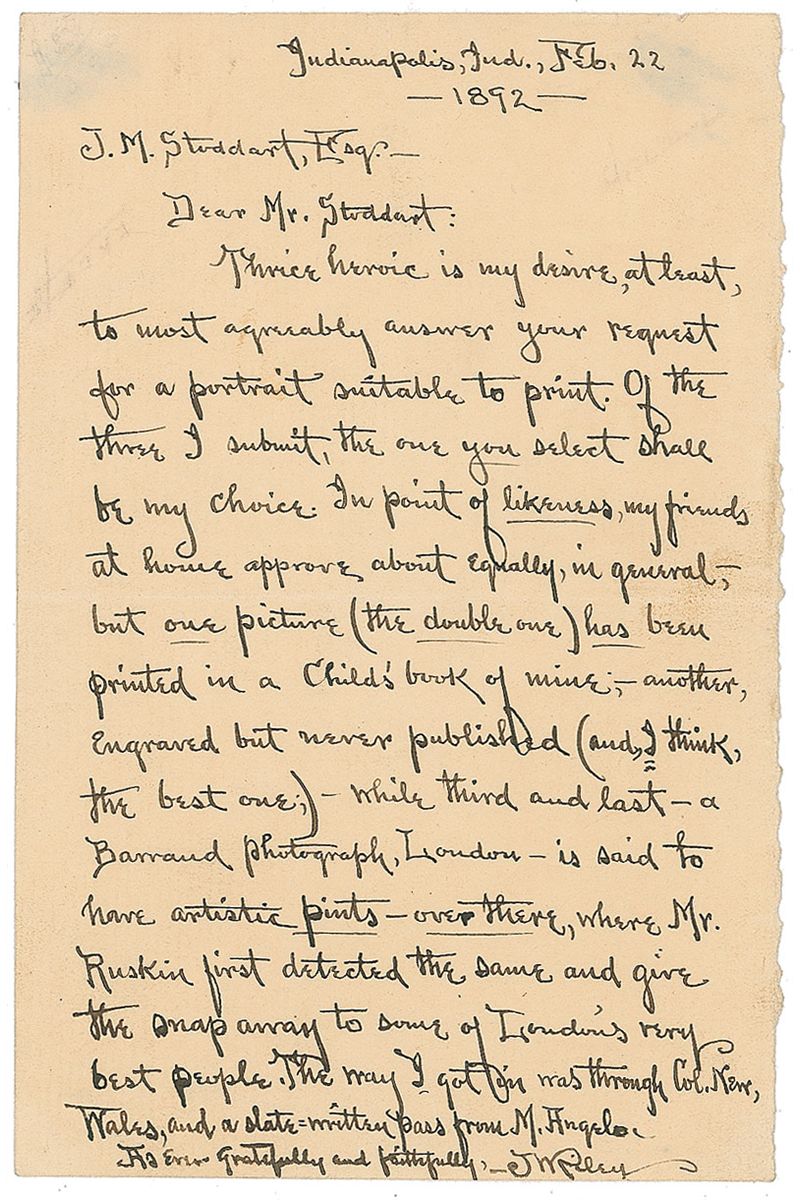 Indianapolis, Ind., Feb. 22
—1892—
J. M. Stoddart, Esq. —
Dear Mr. Stoddart:
Thrice heroic is my desire, at least,
to most agreeably answer your request
for a portrait suitable to print. Of the
three I submit, the one you select shall
be my choice. In point of likeness, my friends
at home approve about equally, in general,—
but one picture (the double one) has been
printed in a Child's book of mine;— another,
engraved but never published (and, I think,
the best one;) — while third and last — a
Barraud photograph, London — is said to
have artistic pints — over there, where Mr.
Ruskin first detected the same and give
the snap away to some of London's very
best people. The way I got in was through Col. New,
Wales, and a slate=written pass from M. Angelo.
As Ever Gratefully and faithfully, — J W Riley